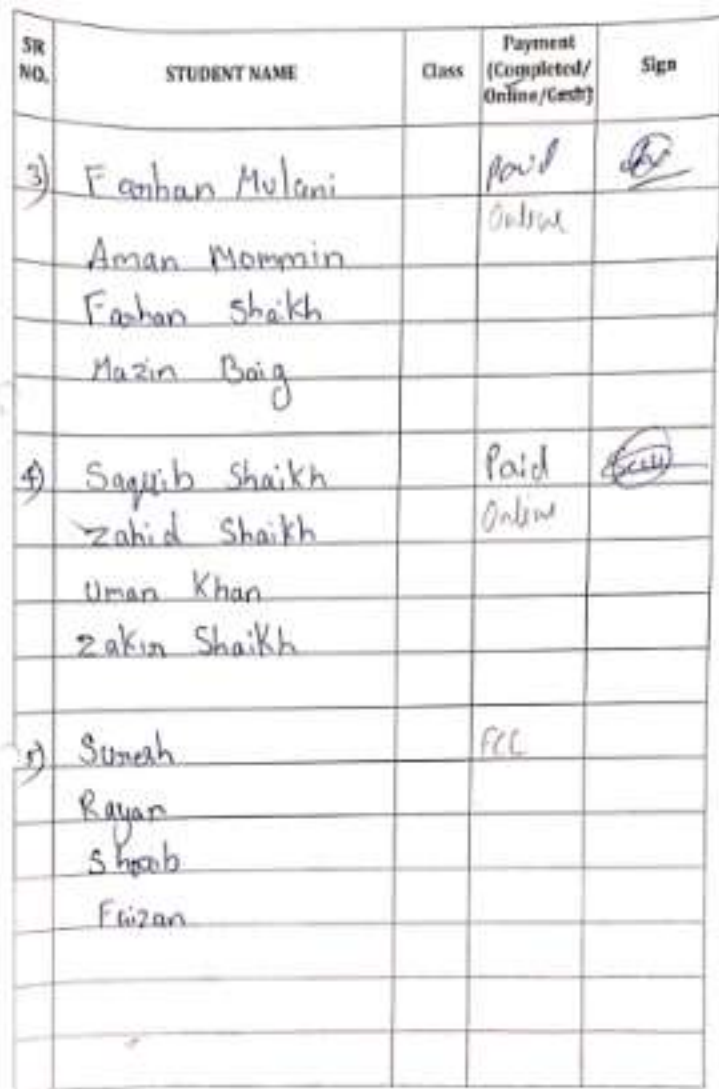 SR NO. STUDENT NAME Class Payment (Completed/Online/Cash) Sign
3) Farhan Mulani Paid
Online
Aman Mommin
Farhan Shaikh
Mazin Baig
4) Saquib Shaikh Paid
Zahid Shaikh Online
Uman Khan
Zakir Shaikh
5) Suresh
Rayan
Shoaib
Faizan